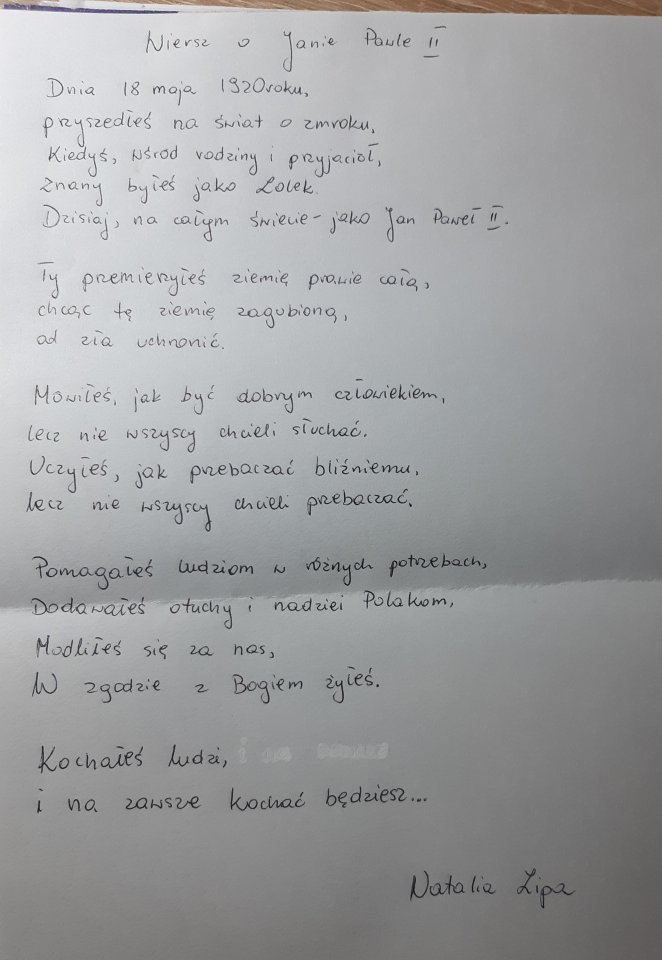 Wiersz o Janie Pawle II
Dnia 18 maja 1920roku,
przyszedłeś na świat o zmroku,
Kiedyś, wśród rodziny i przyjaciół,
Znany byłeś jako Lolek.
Dzisiaj, na całym świecie - jako Jan Paweł II.
Ty przemierzyłeś ziemię prawie całą,
chcąc tę ziemię zagubioną,
od zła uchronić.
Mówiłeś, jak być dobrym człowiekiem,
lecz nie wszyscy chcieli słuchać.
Uczyłeś, jak przebaczać bliźniemu,
lecz nie wszyscy chcieli przebaczać.
Pomagałeś ludziom w różnych potrzebach,
Dodawałeś otuchy i nadziei Polakom,
Modliłeś się za nas,
W zgodzie z Bogiem żyłeś.
Kochałeś ludzi,
i na zawsze kochać będziesz...
Natalia Lipa